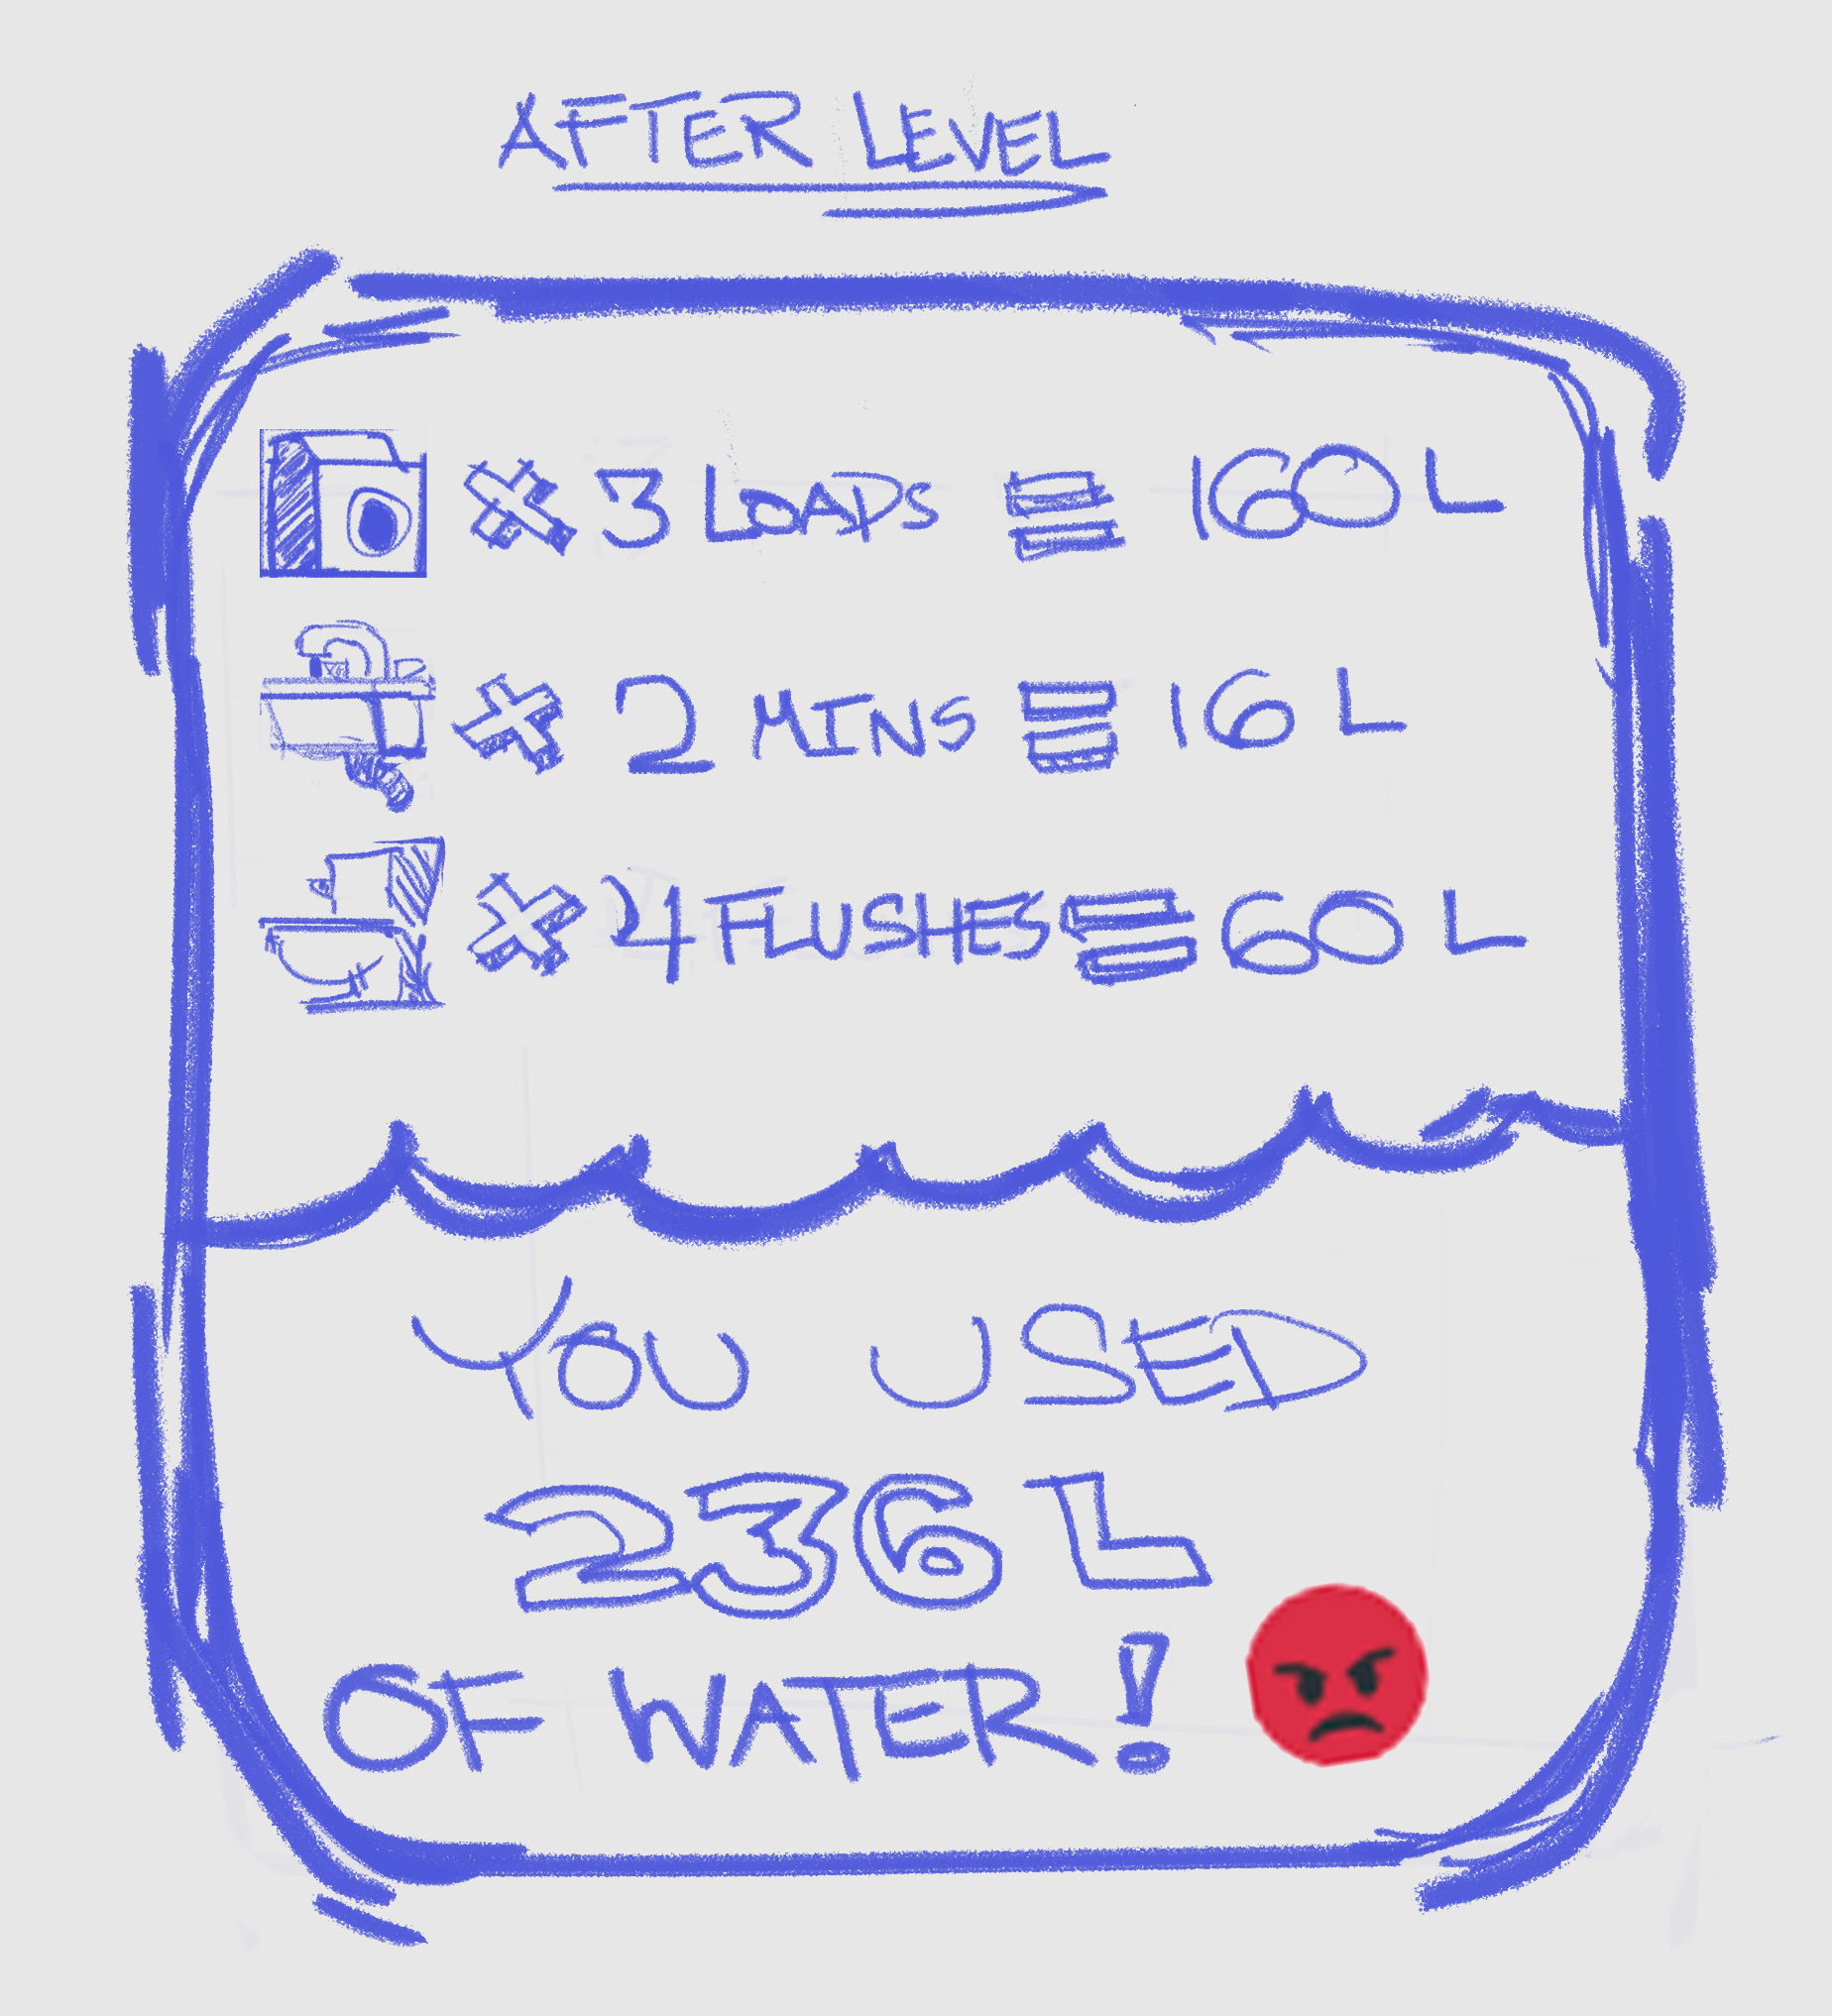 AFTER LEVEL
× 3 LOADS = 160 L
× 2 MINS = 16 L
× 4 FLUSHES = 60 L
YOU USED
236 L
OF WATER!